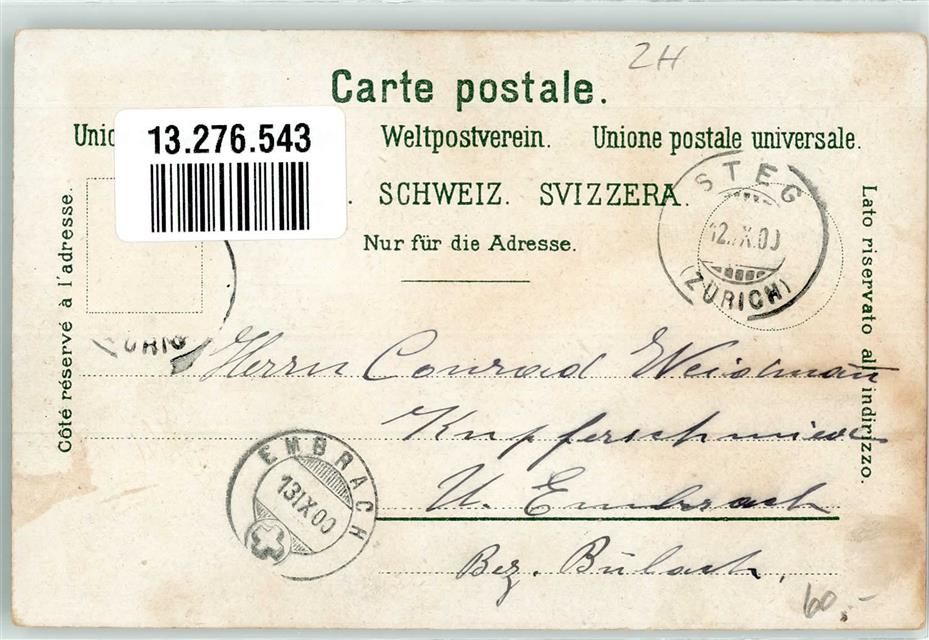 2H
Carte postale.
13.276.543
Weltpostverein. Unione postale universale.
SCHWEIZ. SVIZZERA.
Nur für die Adresse.
Côté réservé à l'adresse.
Lato riservato all'indirizzo.
STEG
12.IX.00
(ZÜRICH)
Herrn Conrad Weidmann
Kupferschmied
U. Embrach
Bez. Bülach.
EMBRACH
13.IX.00
60.-